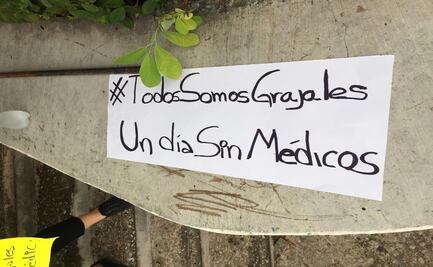 #TodosSomosGrajales
Un día Sin Médicos